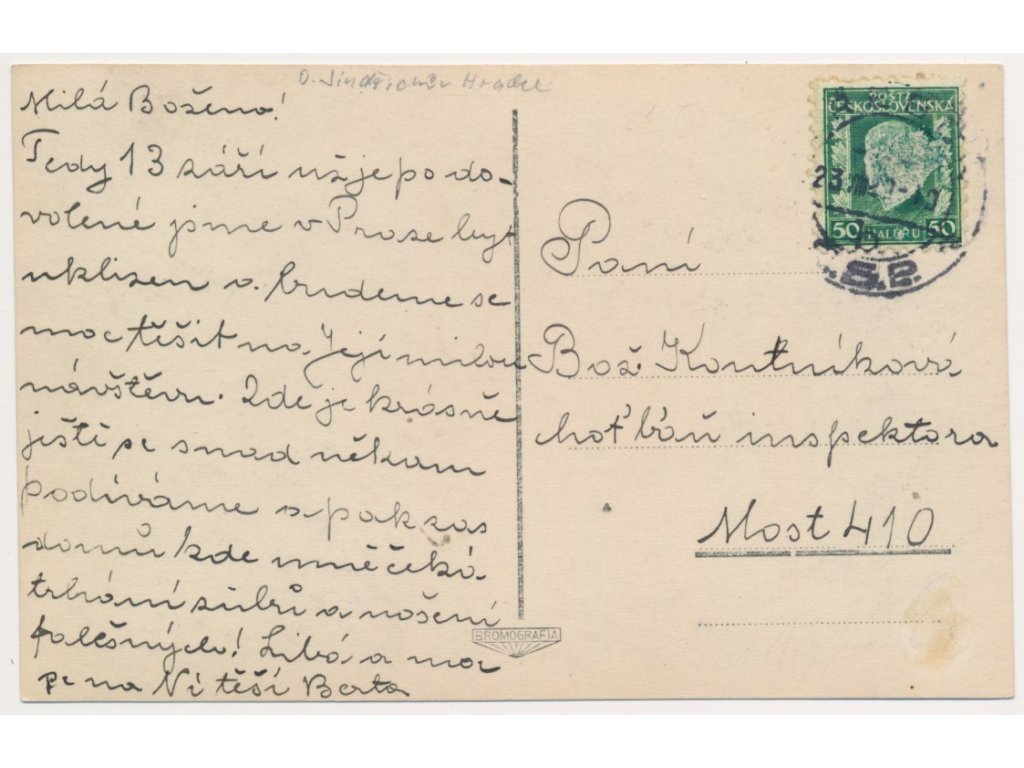 O. Jindřichův Hradec
Milá Boženo!
Tedy 13 září už je po do-
volené jsme v Praze byt
uklizen a budeme se
moc těšit na Její milou
návštěvu. Zde je krásně
ještě se snad někam
podíváme a pak zas
domů kde mně čeká
trhání zubů a nošení
falešných! Líbá a moc
se na Ní těší Berta
POŠTA
ČESKOSLOVENSKÁ
50 HALÉŘŮ 50
Paní
Bož. Koutníková
choť báň inspektora
Most 410
BROMOGRAFIA